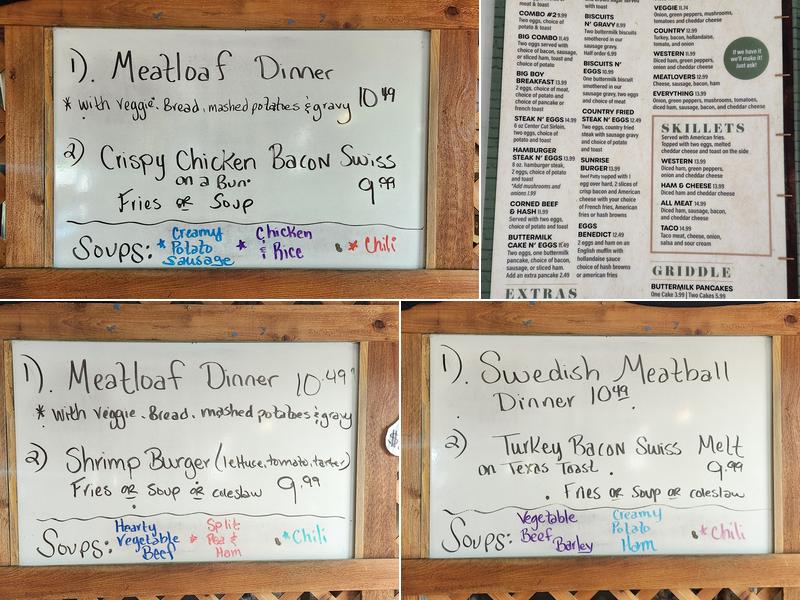 1). Meatloaf Dinner
* with veggie. Bread. mashed potatoes & gravy 10 49
2) Crispy Chicken Bacon Swiss
on a Bun. 9 99
Fries or Soup
Soups: * Creamy Potato Sausage * Chicken & Rice * Chili
meat & toast
COMBO #2 9.99
Two eggs, choice of
potato and toast
BIG COMBO 11.49
Two eggs served with
choice of bacon, sausage,
or sliced ham, toast and
choice of potato
BIG BOY
BREAKFAST 13.99
2 eggs, choice of meat,
choice of potato and
choice of pancake or
french toast
STEAK N' EGGS 14.99
6 oz Center Cut Sirloin,
two eggs, choice of
potato and toast
HAMBURGER
STEAK N' EGGS 13.99
8 oz. hamburger steak,
2 eggs, choice of potato
and toast
*Add mushrooms and
onions 1.99
CORNED BEEF
& HASH 11.99
Served with two eggs,
choice of potato and toast
BUTTERMILK
CAKE N' EGGS 11.49
Two eggs, one buttermilk
pancake, choice of bacon,
sausage, or sliced ham.
Add an extra pancake 2.49
EXTRAS
with toast
BISCUITS
N' GRAVY 8.99
Two buttermilk biscuits
smothered in our
sausage gravy.
Half order 6.99
BISCUITS N'
EGGS 10.99
One buttermilk biscuit
smothered in our
sausage gravy, two eggs
and choice of meat
COUNTRY FRIED
STEAK N' EGGS 12.49
Two eggs, country fried
steak with sausage gravy
and choice of potato
and toast
SUNRISE
BURGER 13.99
Beef Patty topped with 1
egg over hard, 2 slices of
crisp bacon and American
cheese with your choice
of French fries, American
fries or hash browns
EGGS
BENEDICT 12.49
2 eggs and ham on an
English muffin with
hollandaise sauce
choice of hash browns
or american fries
VEGGIE 11.74
Onion, green peppers, mushrooms,
tomatoes and cheddar cheese
COUNTRY 12.99
Turkey, bacon, hollandaise,
tomato, and onion
WESTERN 11.99
Diced ham, green peppers,
onion and cheddar cheese
MEATLOVERS 12.99
Cheese, sausage, bacon, ham
EVERYTHING 13.99
Onion, green peppers, mushrooms, tomatoes,
diced ham, sausage, bacon, and cheddar cheese
If we have it
we'll make it!
Just ask!
SKILLETS
Served with American fries.
Topped with two eggs, melted
cheddar cheese and toast on the side
WESTERN 13.99
Diced ham, green peppers,
onion and cheddar cheese
HAM & CHEESE 13.99
Diced ham and cheddar cheese
ALL MEAT 14.99
Diced ham, sausage, bacon,
and cheddar cheese
TACO 14.99
Taco meat, cheese, onion,
salsa and sour cream
GRIDDLE
BUTTERMILK PANCAKES
One Cake 3.99 | Two Cakes 5.99
1). Meatloaf Dinner 10.49
* with veggie. Bread. mashed potatoes & gravy
2) Shrimp Burger (lettuce, tomato, tarter)
Fries or Soup or coleslaw 9.99
Soups: Hearty Vegetable Beef * Split Pea & Ham * Chili
$
1). Swedish Meatball
Dinner 10 49
2) Turkey Bacon Swiss Melt
on Texas Toast. 9.99
. Fries or Soup or coleslaw
Soups: Vegetable Beef Barley Creamy Potato Ham * Chili